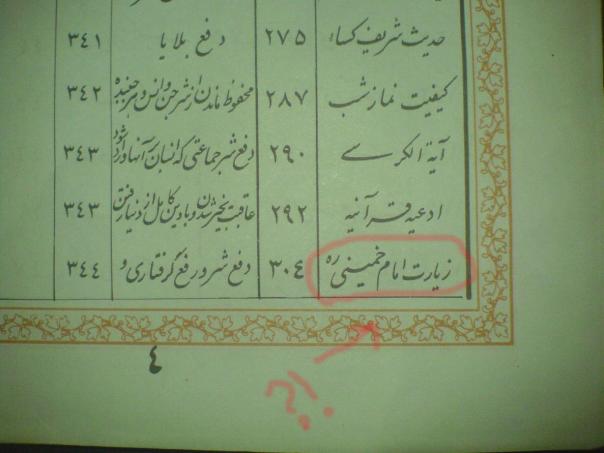 حدیث شریف کساء ۲۷۵ دفع بلایا ۳۴۱
کیفیت نماز شب ۲۸۷ محفوظ ماندن از شر جن و انس و هر جنبنده ۳۴۲
آیة الکرسے ۲۹۰ دفع شر جماعتی که انسان بر آنها وارد شود ۳۴۳
ادعیه قرآنیه ۲۹۲ عاقبت بخیر شدن و با دین کامل از دنیا رفتن ۳۴۳
زیارت امام خمینی ره ۳۰۴ دفع شر و رفع گرفتاری و ۳۴۴
۴
?!